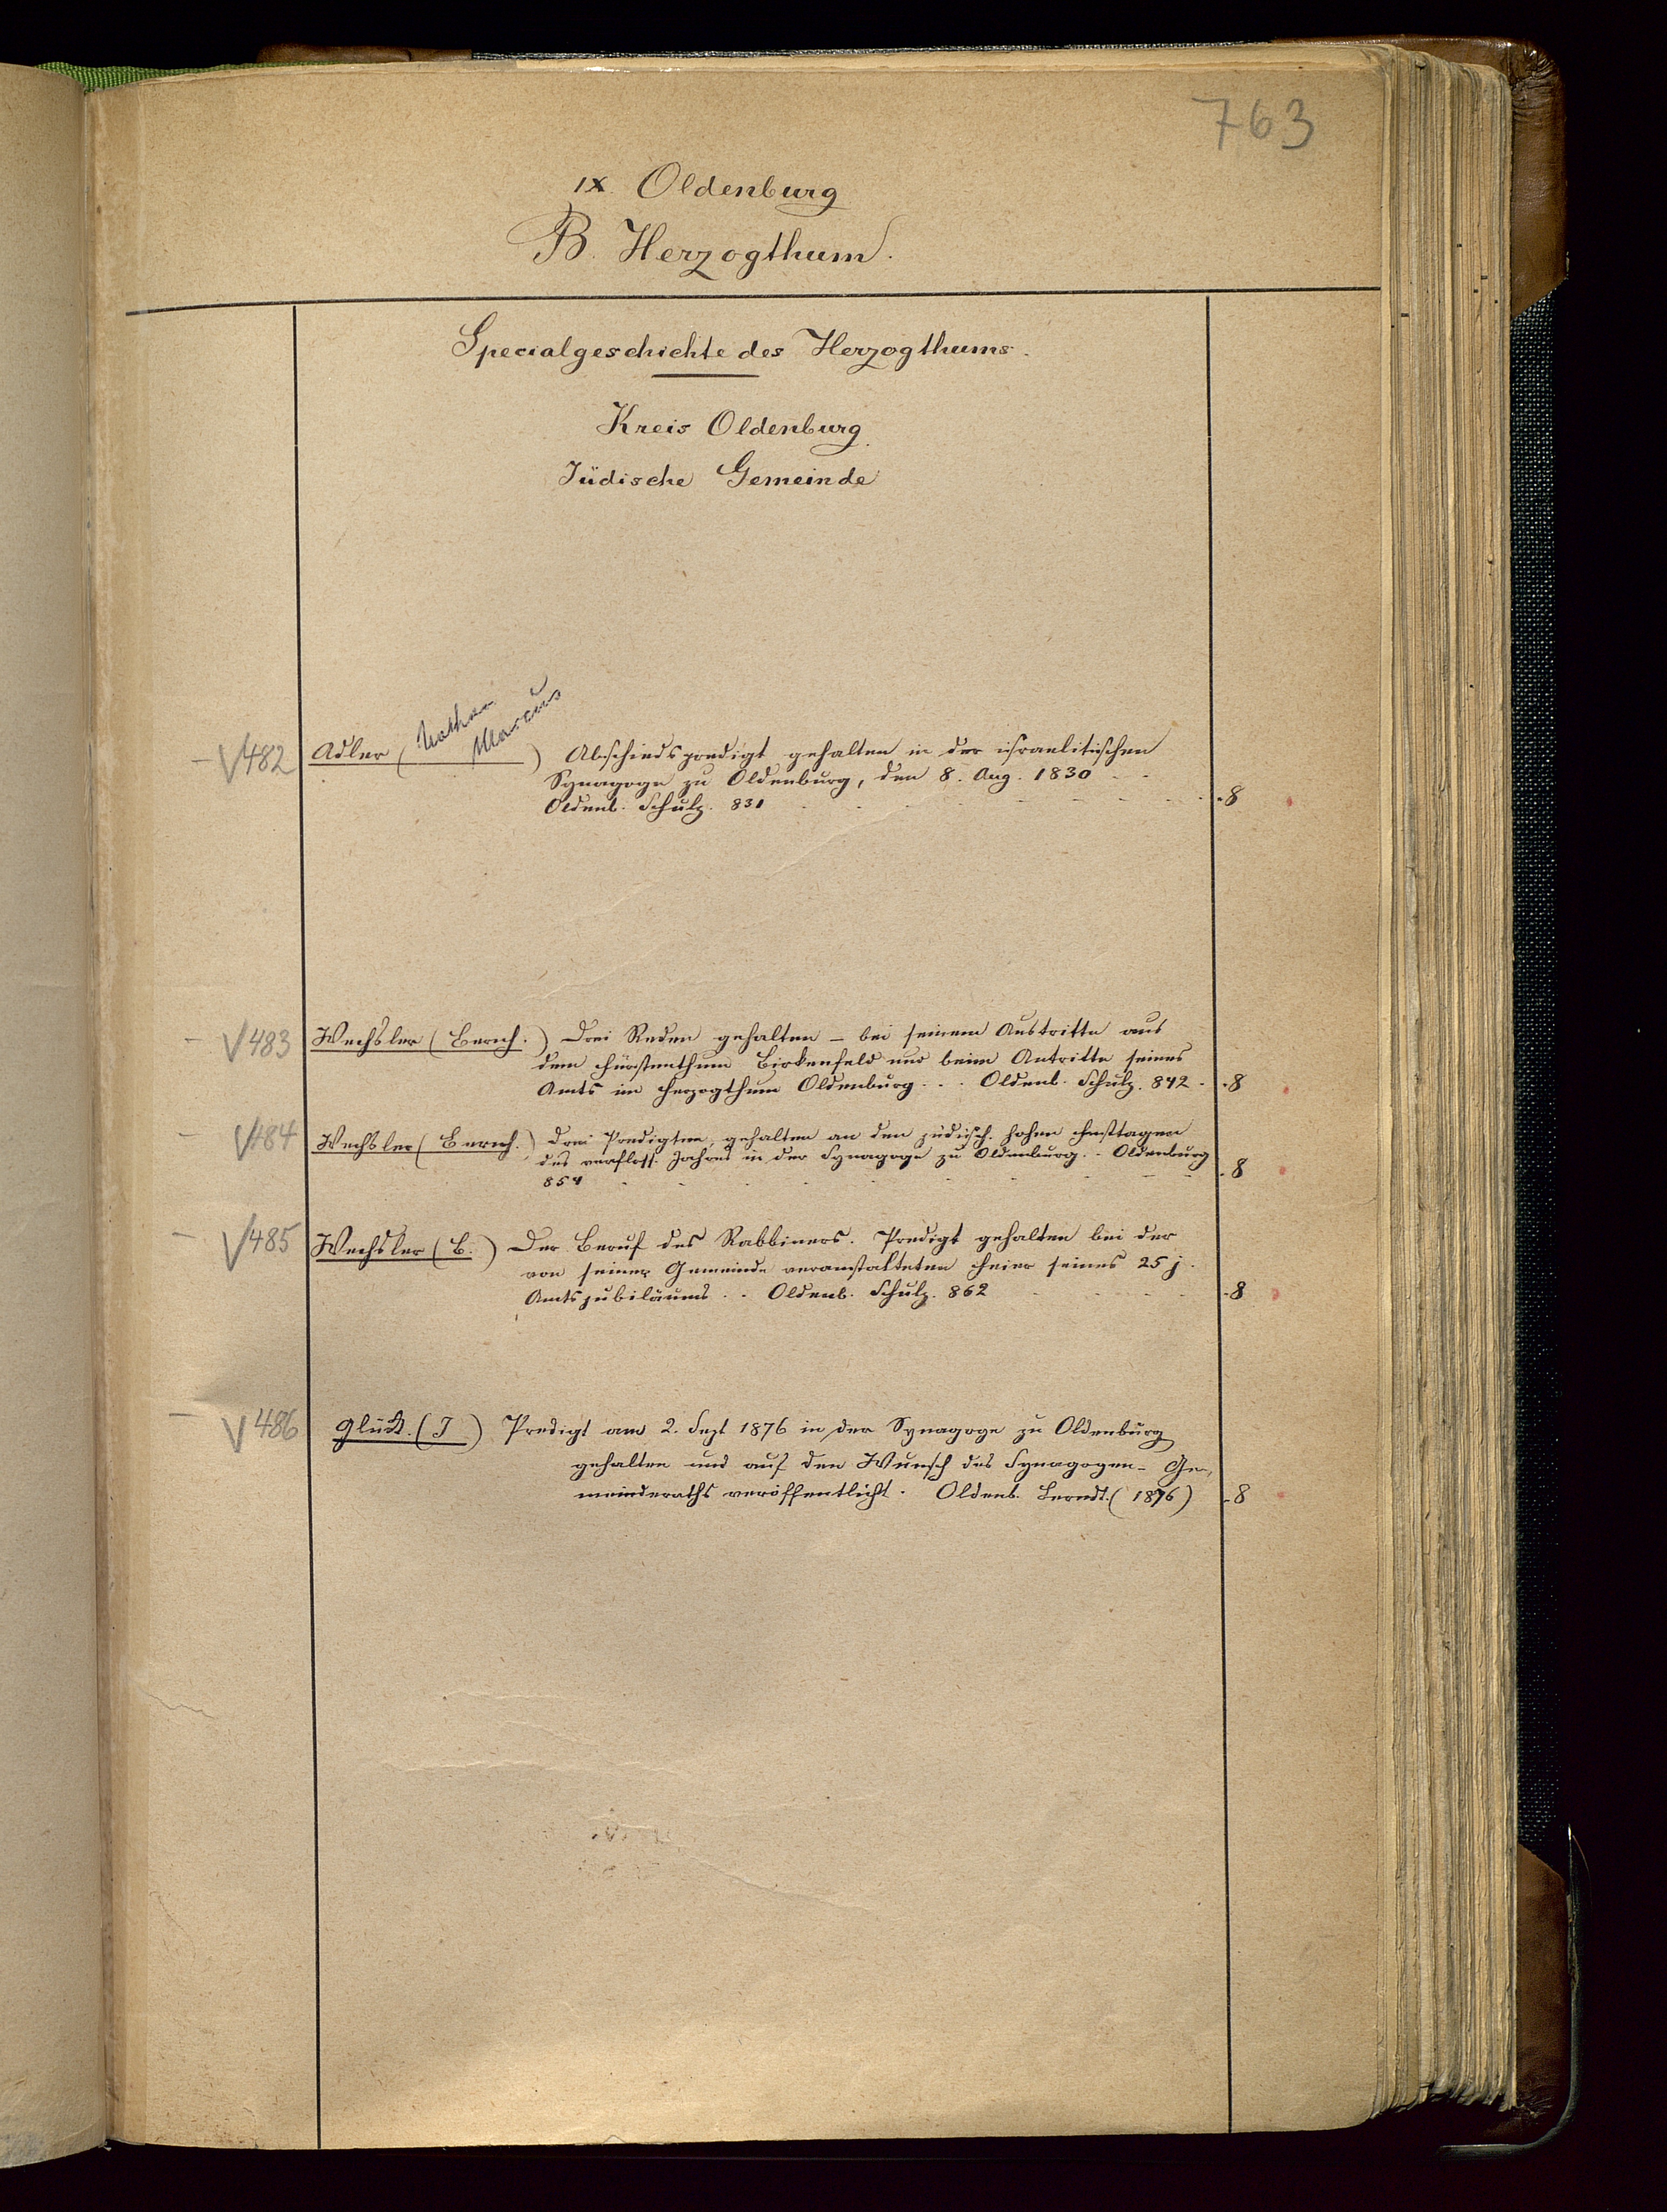 763
IX. Oldenburg
B. Herzogthum.
Specialgeschichte des Herzogthums.
Kreis Oldenburg.
Jüdische Gemeinde
Nathan
Marcus
- V 482 Adler ( ) Abschiedspredigt gehalten in der israelitischen
Synagoge zu Oldenburg, den 8. Aug. 1830 - -
Oldenb. Schulz. 831 - - - - - - - - - 8
- V 483 Wechsler (Berich.) Drei Reden gehalten - bei seinem Austritte aus
dem Fürstenthum Birkenfeld und beim Antritte seines
Amts im Herzogthum Oldenburg - - - Oldenb. Schulz. 842 - - 8
- V 484 Wechsler (Berich.) Drei Predigten, gehalten an den jüdisch. hohen Festtagen
des verfloss. Jahres in der Synagoge zu Oldenburg. - Oldenburg
854 - - - - - - - - - 8
- V 485 Wechsler (B.) Der Beruf des Rabbiners. Predigt gehalten bei der
von seiner Gemeinde veranstalteten Feier seines 25 j.
Amtsjubiläums - - Oldenb. Schulz. 862 - - - - - 8
- V 486 Glück. (I) Predigt am 2. Sept 1876 in der Synagoge zu Oldenburg
gehalten und auf den Wunsch des Synagogen- Ge-
meinderaths veröffentlicht. Oldenb. Berndt. (1876) - 8